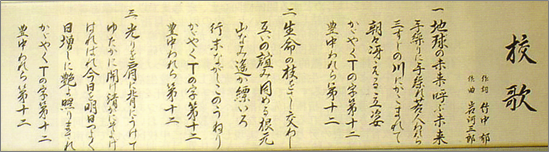 校歌
作詞 竹中 郁
作曲 岩河三郎
一 地球の未来 呼ぶ未来
若人われら
三すじの川にかこまれて
朝々冴える立姿
かゞやくTの字第十二
豊中われら第十二
二 生命の枝をさし交わし
互いの頼み固める根元
山なみ遥か縹いろ
行末ながくこのうねり
かゞやくTの字第十二
豊中われら第十二
三 光りを肩に背にうけて
ゆたかに開け
はればれ今日も明日
日増しに艶と照りまされ
かゞやくTの字第十二
豊中われら第十二